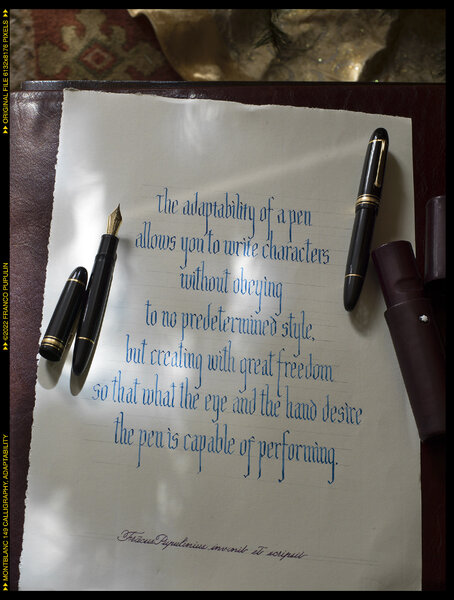 The adaptability of a pen
allows you to write characters
without obeying
to no predetermined style,
but creating with great freedom
so that what the eye and the hand desire
the pen is capable of performing.
Frãcus Pupulinius invenit et scripsit
MONTBLANC 149 CALLIGRAPHY, ADAPTABILITY
©2022 FRANCO PUPULIN
ORIGINAL FILE 6132x8176 PIXELS